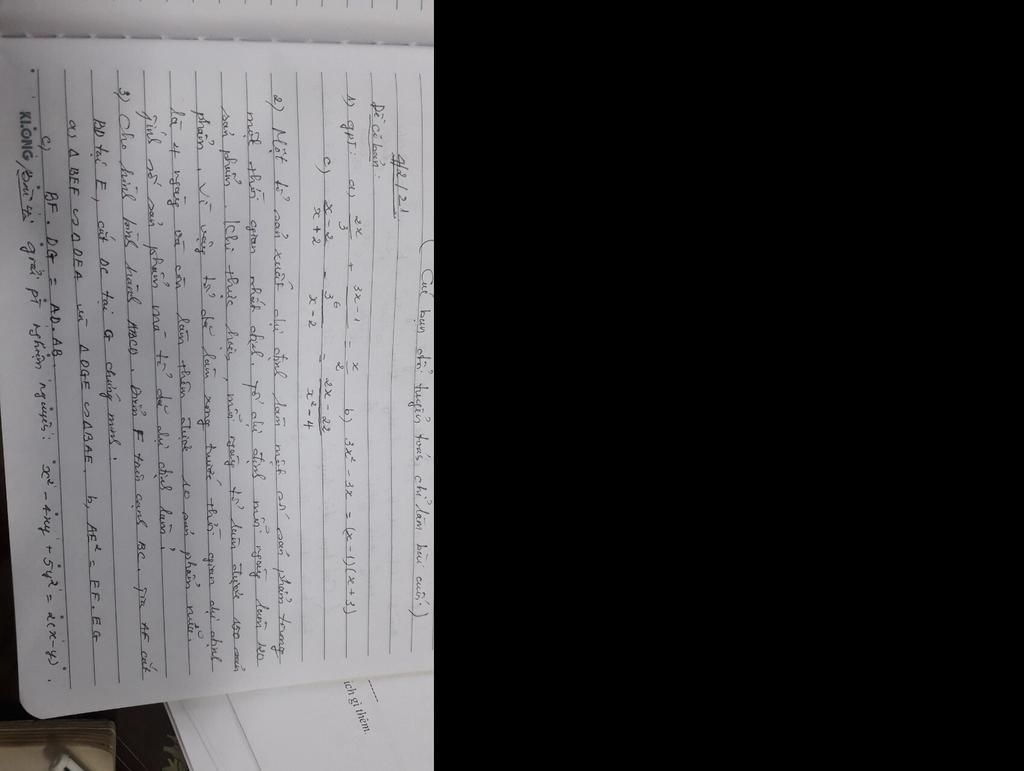 (Các bạn đội tuyển toán chỉ làm bài cuối.)
4/2/21
Đề cơ bản:
1) gpt: a) 2x/3 + 3x-1/6 = x/2 b) 3x² - 3x = (x-1)(x+3)
c) x-2/x+2 - 3/x-2 = 2x-22/x²-4
2) Một tổ sản xuất dự định làm một số sản phẩm trong
một thời gian nhất định. Tổ dự định mỗi ngày làm 120
sản phẩm. Khi thực hiện, mỗi ngày tổ làm được 150 sản
phẩm. Vì vậy tổ đã làm xong trước thời gian dự định
là 4 ngày và còn làm thêm được 10 sản phẩm nữa.
Tính số sản phẩm mà tổ đã dự định làm?
3) Cho hình bình hành ABCD. Điểm F trên cạnh BC. Tia AF cắt
BD tại E, cắt DC tại G chứng minh:
a) Δ BEF ∽ Δ DEA và Δ DGE ∽ Δ BAE. b, AE² = EF.EG
c) BF.DG = AD.AB.
KLONG Bài 4: giải pt nghiệm nguyên: x² - 4xy + 5y² = 2(x-y).
ích gì thêm.